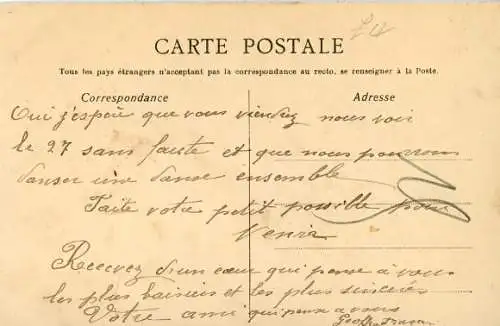 CARTE POSTALE
Tous les pays étrangers n'acceptant pas la correspondance au recto, se renseigner à la Poste.
Correspondance
Adresse
Oui j'espère que vous viendrez nous voir
le 27 sans faute et que nous pourrons
danser une danse ensemble
Faite votre petit possible pour
Venir
Recevez d'un cœur qui pense à vous
les plus baisers et les plus sincères
Votre ami qui pense a vous